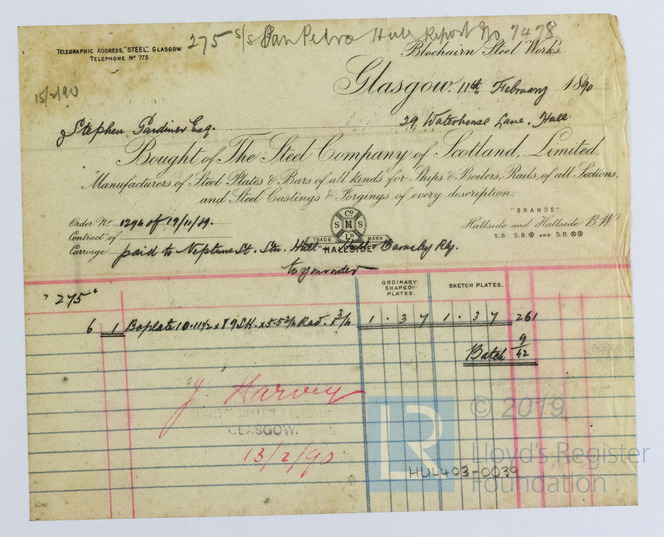 275 S/S San Pedro Hull Report No 7478
TELEGRAPHIC ADDRESS, "STEEL", GLASGOW.
TELEPHONE Nº 773.
Blochairn Steel Works.
15/2/90
Glasgow. 11th February 1890
Stephen Gardiner Esq.
29 Waterhouse Lane, Hull
Bought of The Steel Company of Scotland, Limited,
Manufacturers of Steel Plates & Bars of all kinds for Ships & Boilers, Rails, of all Sections,
and Steel Castings & Forgings of every description.
Order No. 1294 of 29/11/89.
Contract of
Carriage paid to Neptune St. Stn. Hull Barnsley Rly.
to your order
Cº
S H S
TRADE MARK
HALLSIDE
"BRANDS"
Hallside and Hallside B.W
S.B. S.B AND S.B.
ORDINARY SHAPED PLATES.
SKETCH PLATES.
"275"
6 1 Boplate 10.11½ x 8 9 x 5.5 Rad. 1.3.7 1.3.7 261
Batch 9/42
J. Harvey
GLASGOW.
13/2/90
© 2019
LR
Lloyd's Register
Foundation
HUL403-0039